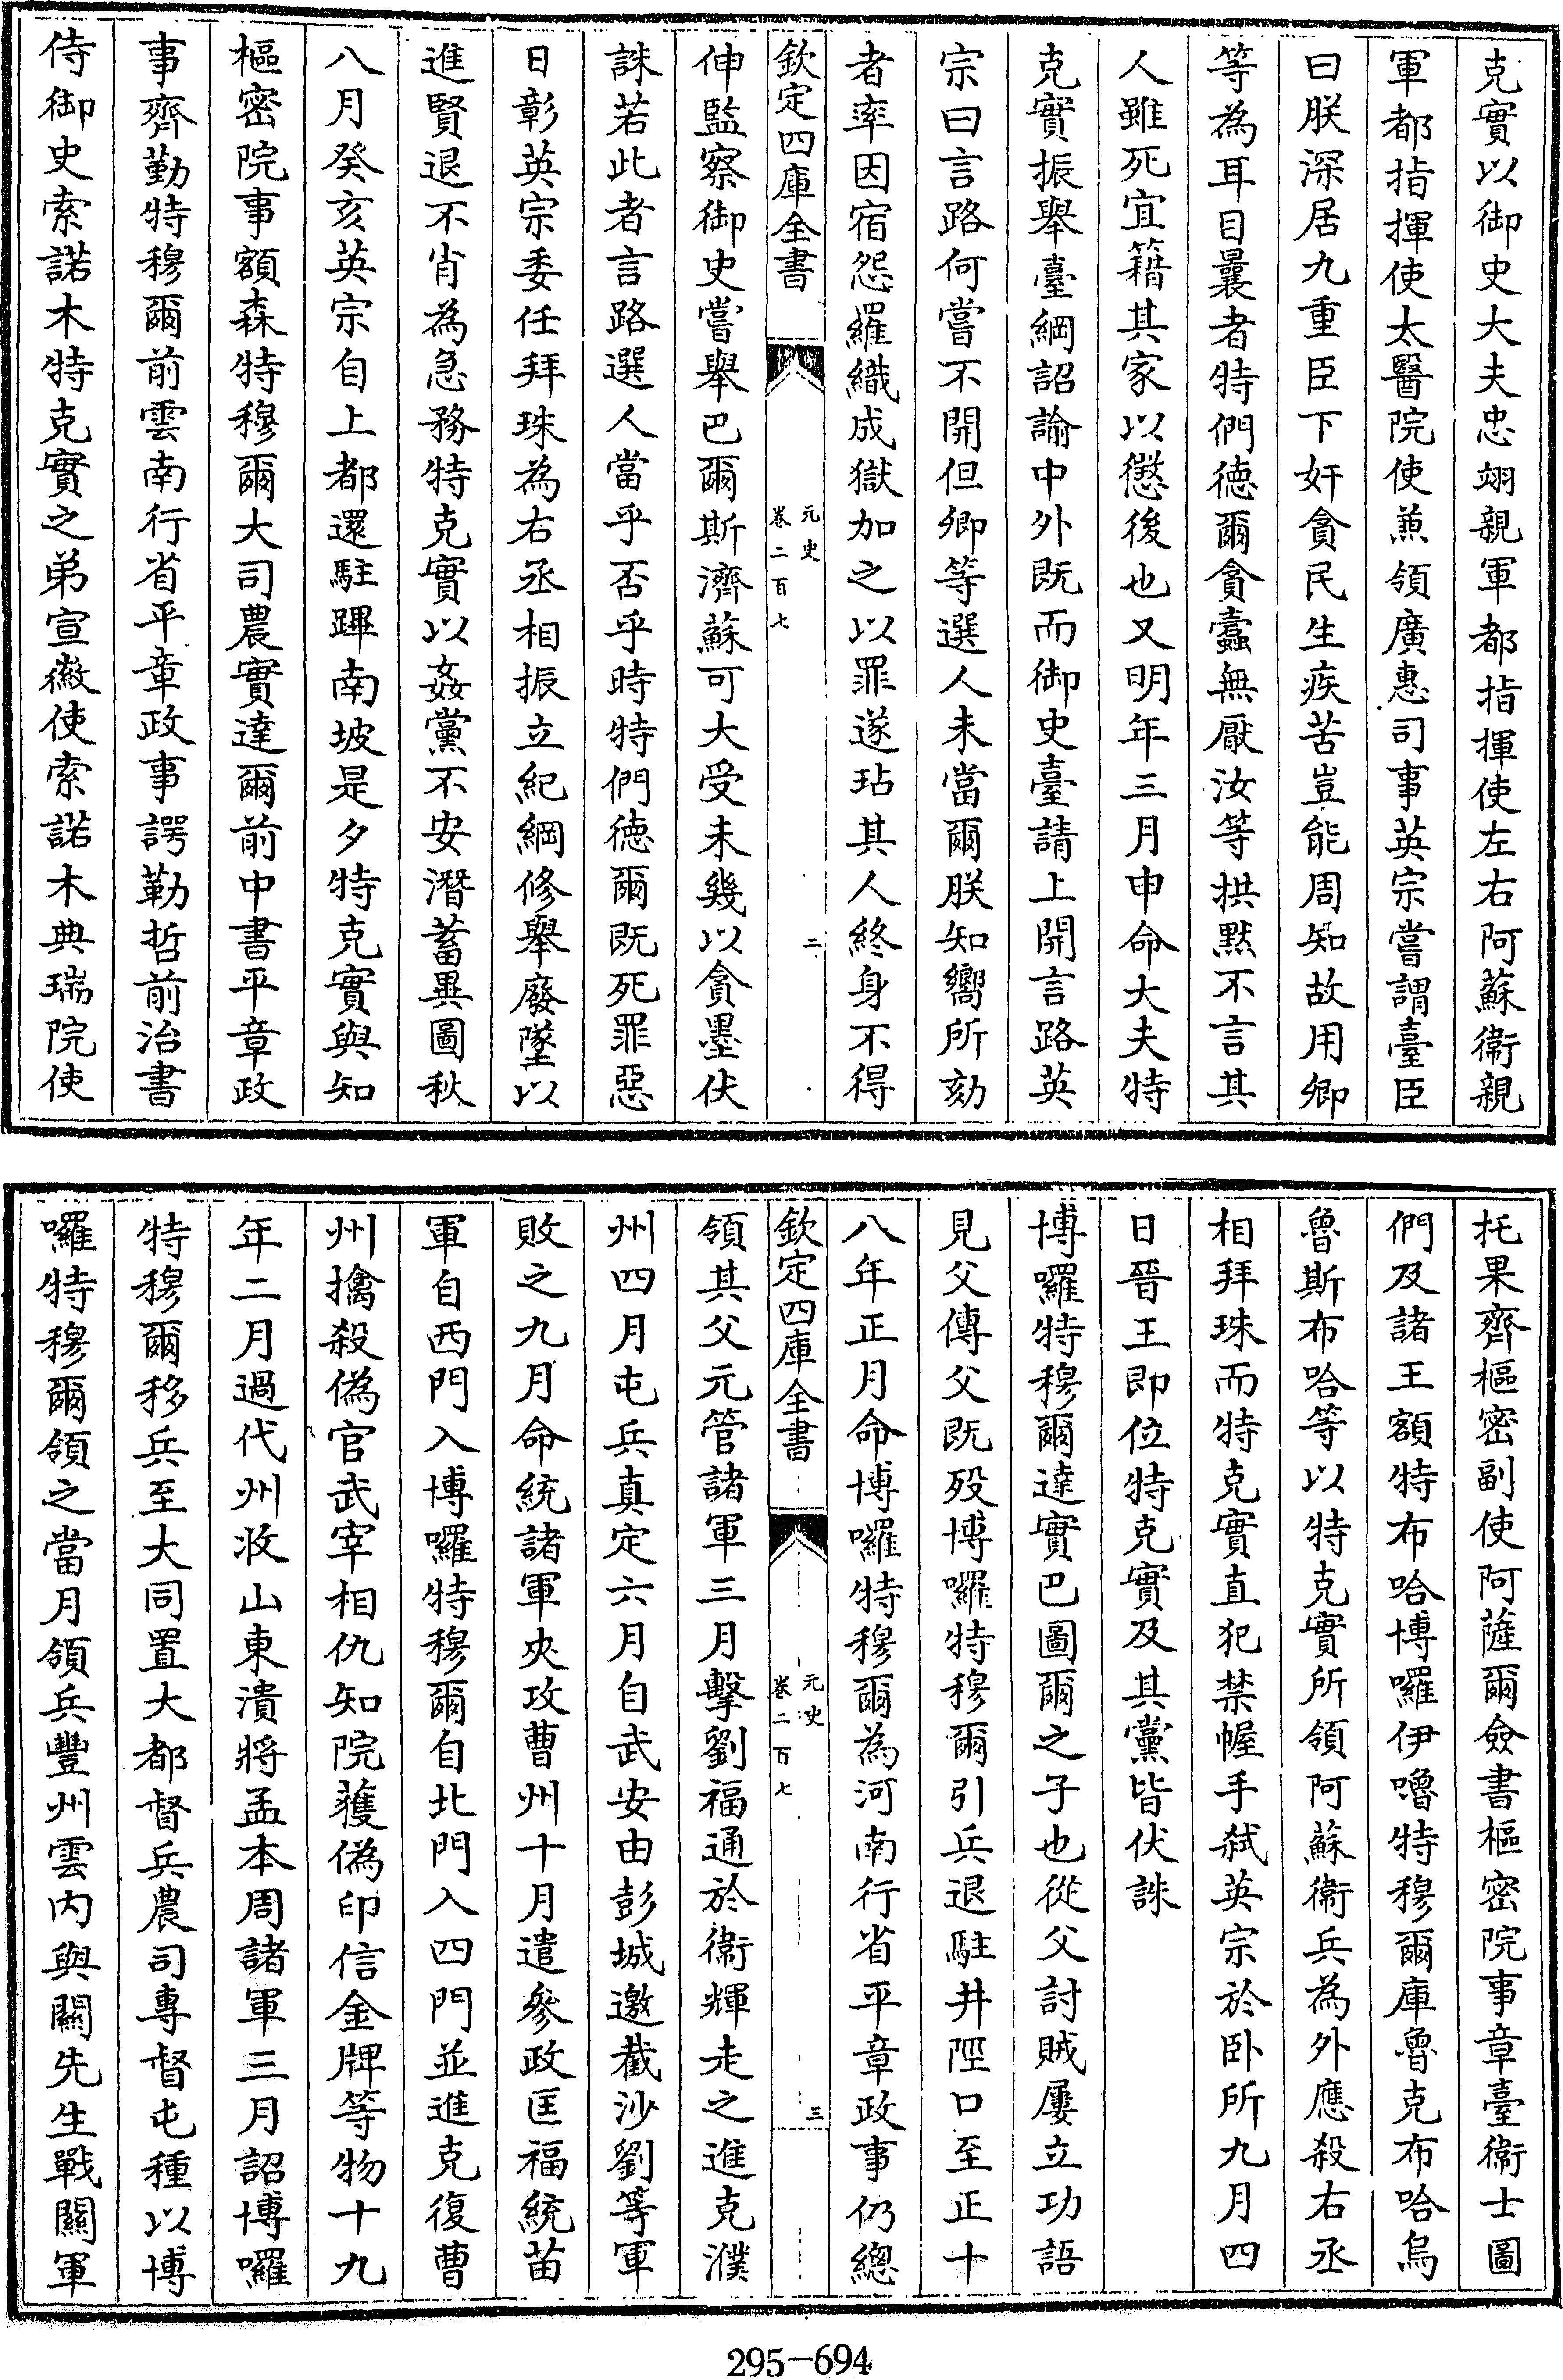 克實以御史大夫忠翊親軍都指揮使左右阿蘇衞親
軍都指揮使太醫院使兼領廣惠司事英宗嘗謂臺臣
曰朕深居九重臣下奸貪民生疾苦豈能周知故用卿
等為耳目曩者特們德爾貪蠹無厭汝等拱黙不言其
人雖死宜籍其家以懲後也又明年三月申命大夫特
克實振舉臺綱詔諭中外既而御史臺請上開言路英
宗曰言路何嘗不開但卿等選人未當爾朕知嚮所劾
者率因宿怨羅織成獄加之以罪遂玷其人終身不得
欽定四庫全書
元史
卷二百七
二
伸監察御史嘗舉巴爾斯濟蘇可大受未幾以貪墨伏
誅若此者言路選人當乎否乎時特們德爾既死罪惡
日彰英宗委任拜珠為右丞相振立紀綱修舉廢墜以
進賢退不肖為急務特克實以姦黨不安潛蓄異圖秋
八月癸亥英宗自上都還駐蹕南坡是夕特克實與知
樞密院事額森特穆爾大司農實達爾前中書平章政
事齊勤特穆爾前雲南行省平章政事諤勒哲前治書
侍御史索諾木特克實之弟宣徽使索諾木典瑞院使
托果齊樞密副使阿薩爾僉書樞密院事章臺衞士圖
們及諸王額特布哈博囉伊嚕特穆爾庫魯克布哈烏
魯斯布哈等以特克實所領阿蘇衞兵為外應殺右丞
相拜珠而特克實直犯禁幄手弑英宗於卧所九月四
日晉王即位特克實及其黨皆伏誅
博囉特穆爾達實巴圖爾之子也從父討賊屢立功語
見父傳父既殁博囉特穆爾引兵退駐井陘口至正十
八年正月命博囉特穆爾為河南行省平章政事仍總
欽定四庫全書
元史
卷二百七
三
領其父元管諸軍三月擊劉福通於衞輝走之進克濮
州四月屯兵真定六月自武安由彭城邀截沙劉等軍
敗之九月命統諸軍夾攻曹州十月遣參政匡福統苗
軍自西門入博囉特穆爾自北門入四門並進克復曹
州擒殺偽官武宰相仇知院獲偽印信金牌等物十九
年二月過代州收山東潰將孟本周諸軍三月詔博囉
特穆爾移兵至大同置大都督兵農司專督屯種以博
囉特穆爾領之當月領兵豐州雲内與關先生戰關軍
295-694